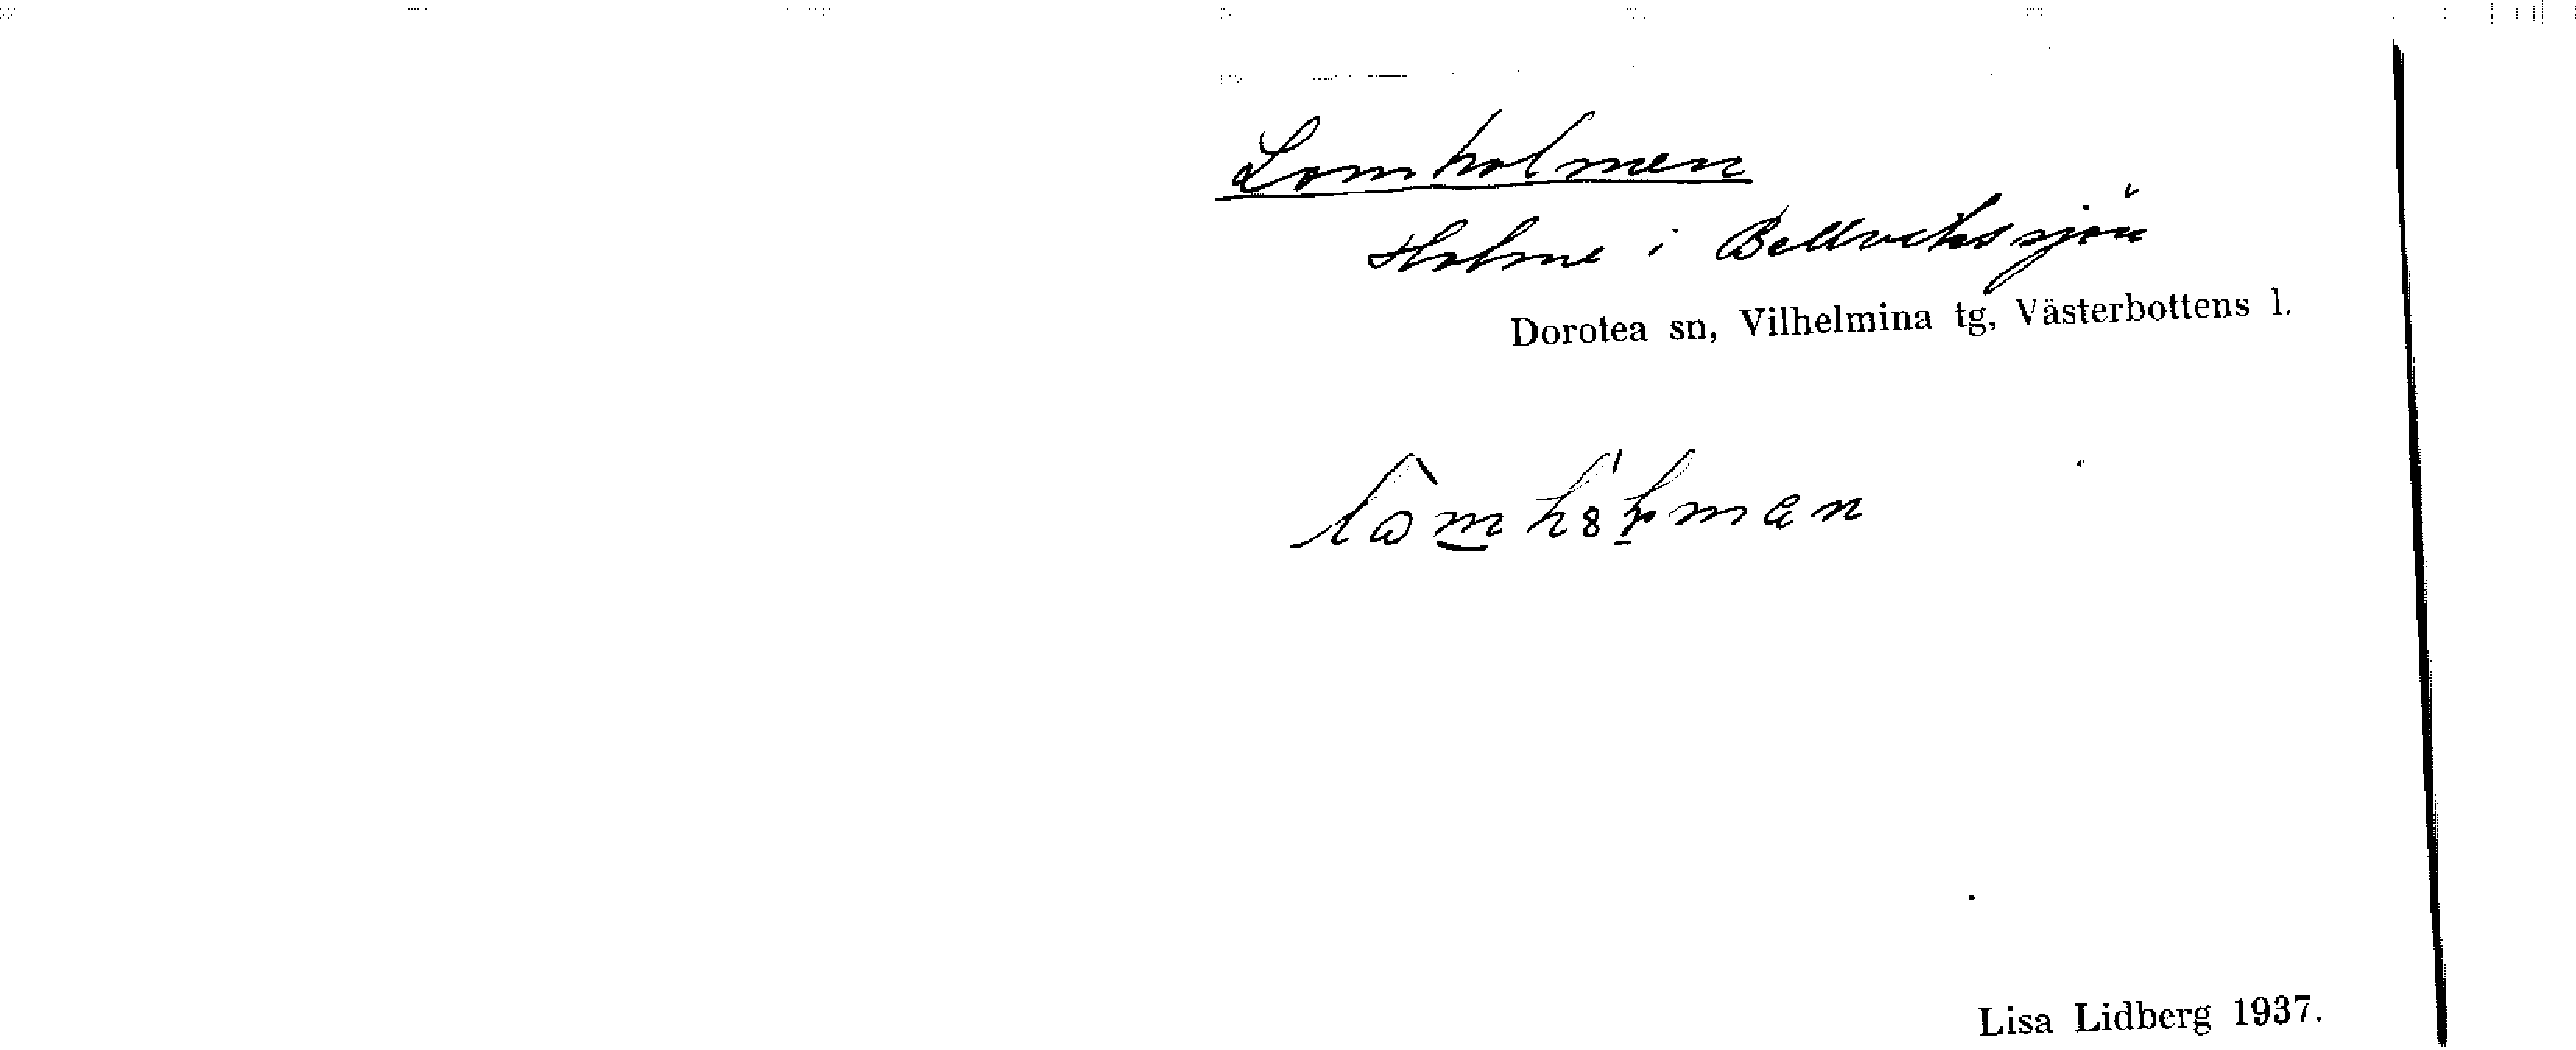 Lomholmen
Holme i Bellvikssjön
Dorotea sn, Vilhelmina tg, Västerbottens l.
Lisa Lidberg 1937.